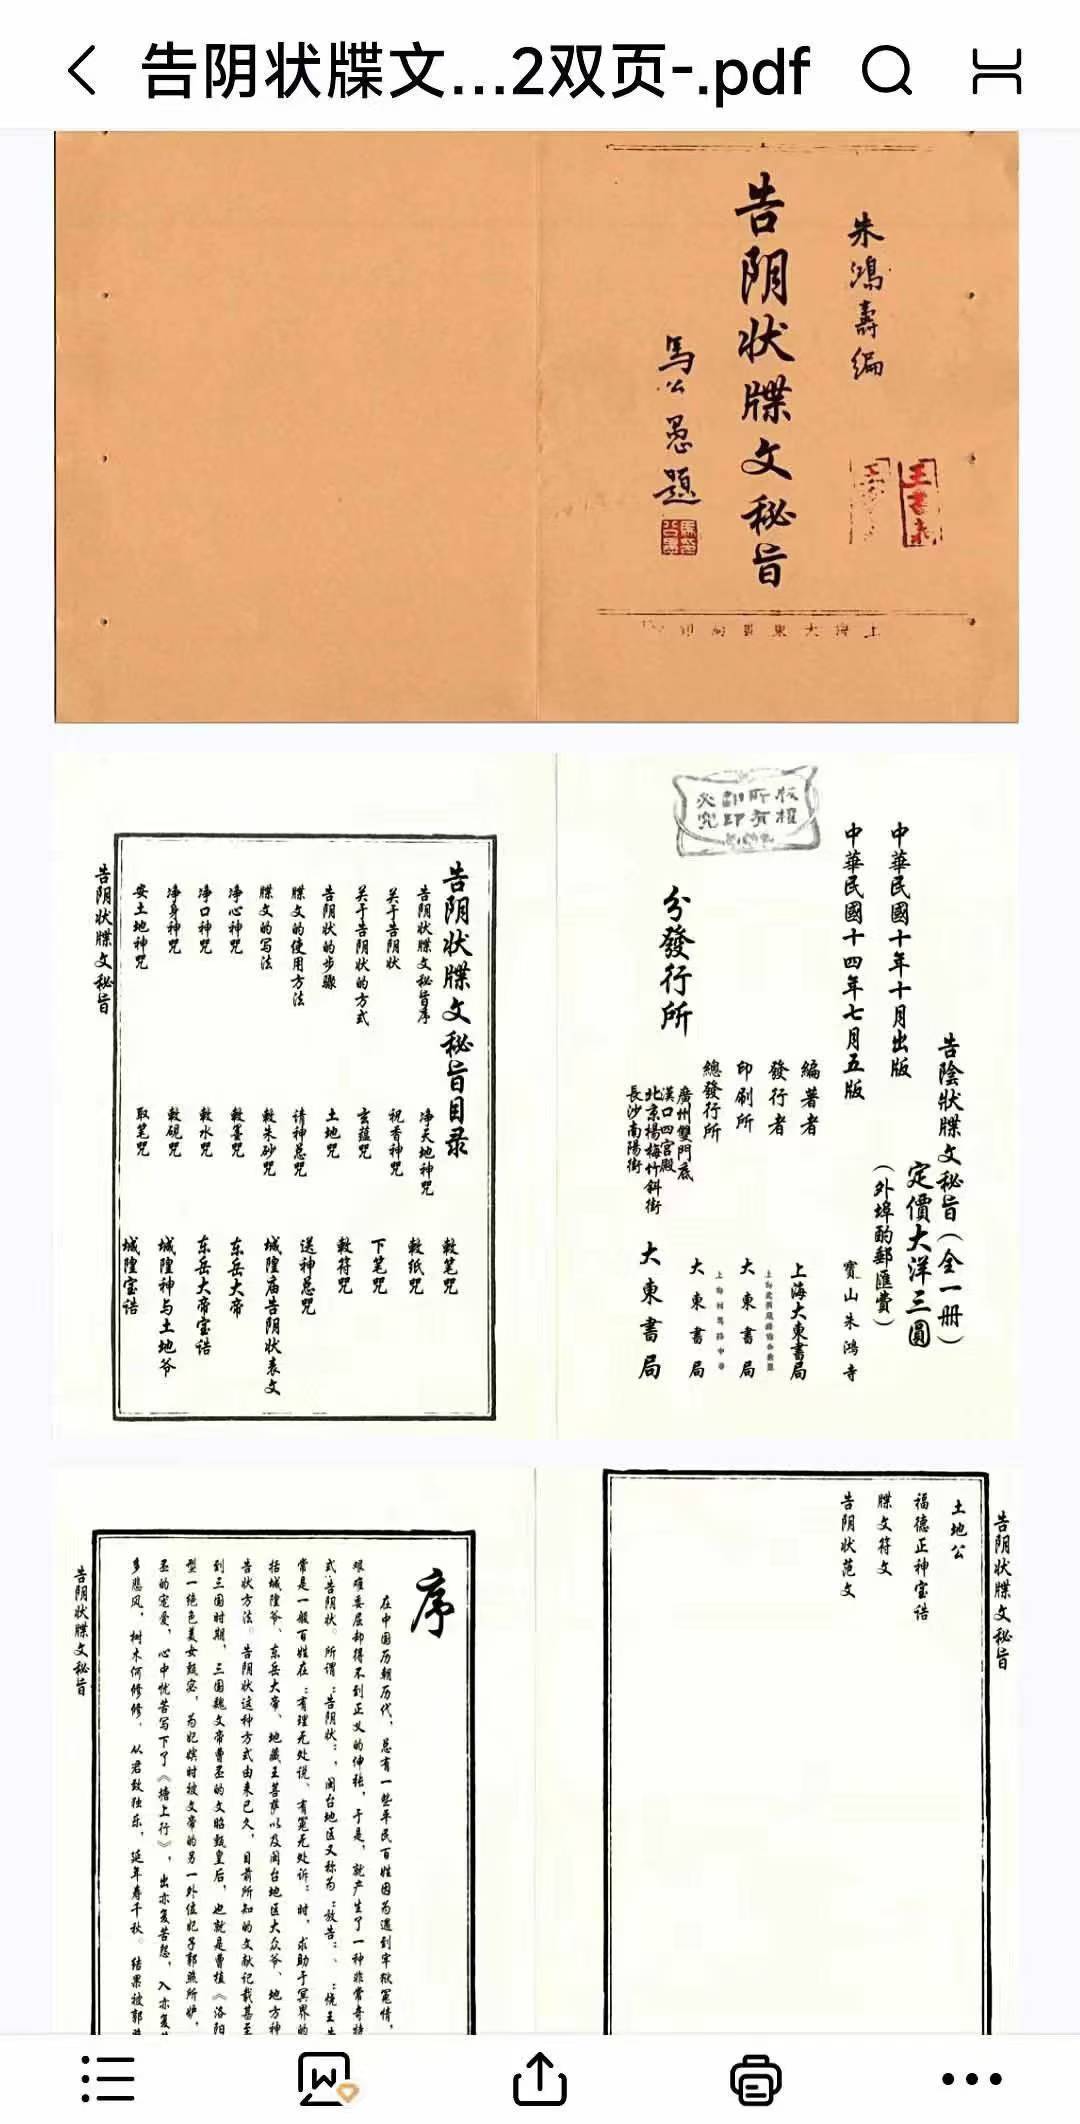 告阴状牒文...2双页-.pdf
朱鴻壽编
告阴状牒文秘旨
馬公愚题
上海大東書局印
版權
所有
翻印
必究
告陰狀牒文秘旨（全一册）
定價大洋三圓
（外埠酌郵匯費）
中華民國十年十月出版
中華民國十四年七月五版
編著者
寶山朱鴻寺
發行者
上海大東書局
印刷所
大東書局
總發行所
大東書局
分發行所
廣州雙門底
漢口四官殿
北京楊梅竹斜街
長沙南陽街
大東書局
告阴状牒文秘旨目录
告阴状牒文秘旨序
关于告阴状
关于告阴状的方式
告阴状的步骤
牒文的使用方法
牒文的写法
净心神咒
净口神咒
净身神咒
安土地神咒
净天地神咒
祝香神咒
玄蕴咒
土地咒
请神总咒
敕朱砂咒
敕墨咒
敕水咒
敕砚咒
取笔咒
敕笔咒
敕纸咒
下笔咒
敕符咒
送神总咒
城隍庙告阴状表文
东岳大帝
东岳大帝宝诰
城隍神与土地爷
城隍宝诰
告阴状牒文秘旨
告阴状牒文秘旨
土地公
福德正神宝诰
牒文符文
告阴状范文
序
在中国历朝历代，总有一些平民百姓因为遇到牢狱冤情，
艰难委屈却得不到正义的伸张，于是，就产生了一种非常奇特
式:告阴状。所谓:告阴状:，闽台地区又称为:放告:、
常是一般百姓在:有理无处说、有冤无处诉:时，求助于冥界的
括城隍爷、东岳大帝、地藏王菩萨以及闽台地区大众爷、地方神
告状方法。告阴状这种方式由来已久，目前所知的文献记载甚至
到三国时期，三国魏文帝曹丕的文昭甄皇后，也就是曹植《洛阳
型一绝色美女甄宓，为妃嫔时被文帝的另一外位妃子郭照所妒，
丕的宠爱，心中忧苦写下了《塘上行》，出亦复苦愁，入亦复
多悲风，树木何修修，从君致独乐，延年寿千秋。结果被郭
告阴状牒文秘旨